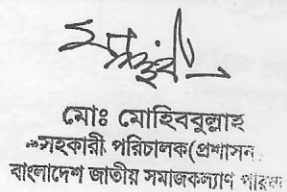 মোঃ মোহিববুল্লাহ
সহকারী পরিচালক(প্রশাসন
বাংলাদেশ জাতীয় সমাজকল্যাণ পরিষদ